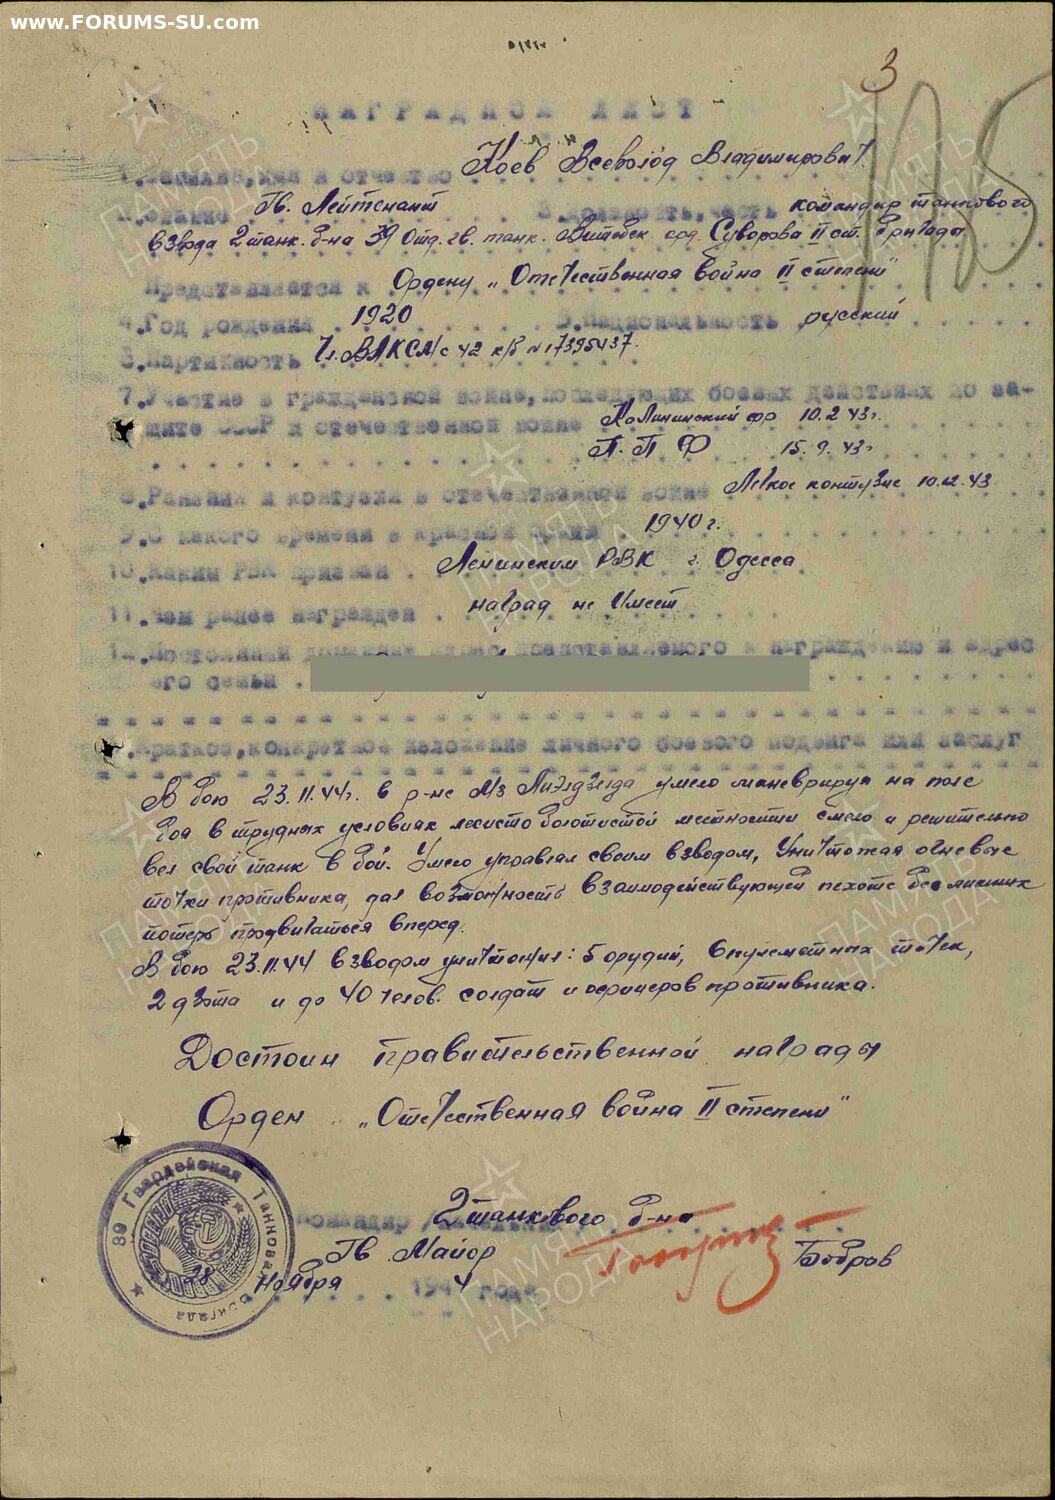 www.FORUMS-SU.com
3
НАГРАДНОЙ ЛИСТ
1.Фамилия,имя и отчество Коев Всеволод Владимирович
2.Звание Гв. Лейтенант 3.Должность,часть командир танкового
взвода 2 танк. б-на 39 Отд. гв. танк. Витебск. орд. Суворова II ст. бригада
Представляется к Ордену „Отечественная война II степени"
4.Год рождения 1920 5.Национальность русский
6.Партийность Чл. ВЛКСМ с 42 к/б № 17395437.
7.Участие в гражданской войне,последующих боевых действиях по за-
щите СССР и отечественной войне Калининский фр 10.2.43 г.
П. П Ф 15.9.43 г
8.Ранения и контузии в отечественной войне Легкое контузие 10.12.43
9.С какого времени в красной армии 1940 г.
10.Каким РВК призван Ленинским РВК г. Одесса
11.Чем ранее награжден наград не имеет
12.Постоянный домашний адрес представляемого к награждению и адрес
его семьи
Краткое,конкретное изложение личного боевого подвига или заслуг
В бою 23.11.44г. в р-не М/з маневрируя на поле
боя в трудных условиях лесисто болотистой местности смело и решительно
вел свой танк в бой. Умело управлял своим взводом, Уничтожая огневые
точки противника, дал возможность взаимодействующей пехоте без лишних
потерь продвигаться вперед.
В бою 23.11.44 взводом уничтожил: 5 орудий, 6 пулеметных точек,
2 дзота и до 40 челов. солдат и офицеров противника.
Достоин правительственной награды
Орден „Отечественная война II степени"
Командир 2 танкового б-на
Гв Майор Бобров
28 Ноября 1944 года
39 Гвардейская Танковая Бригада
ПАМЯТЬ НАРОДА